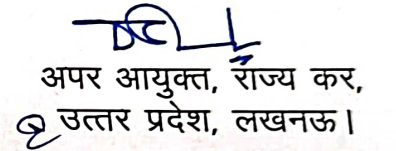 अपर आयुक्त, राज्य कर,
उत्तर प्रदेश, लखनऊ।